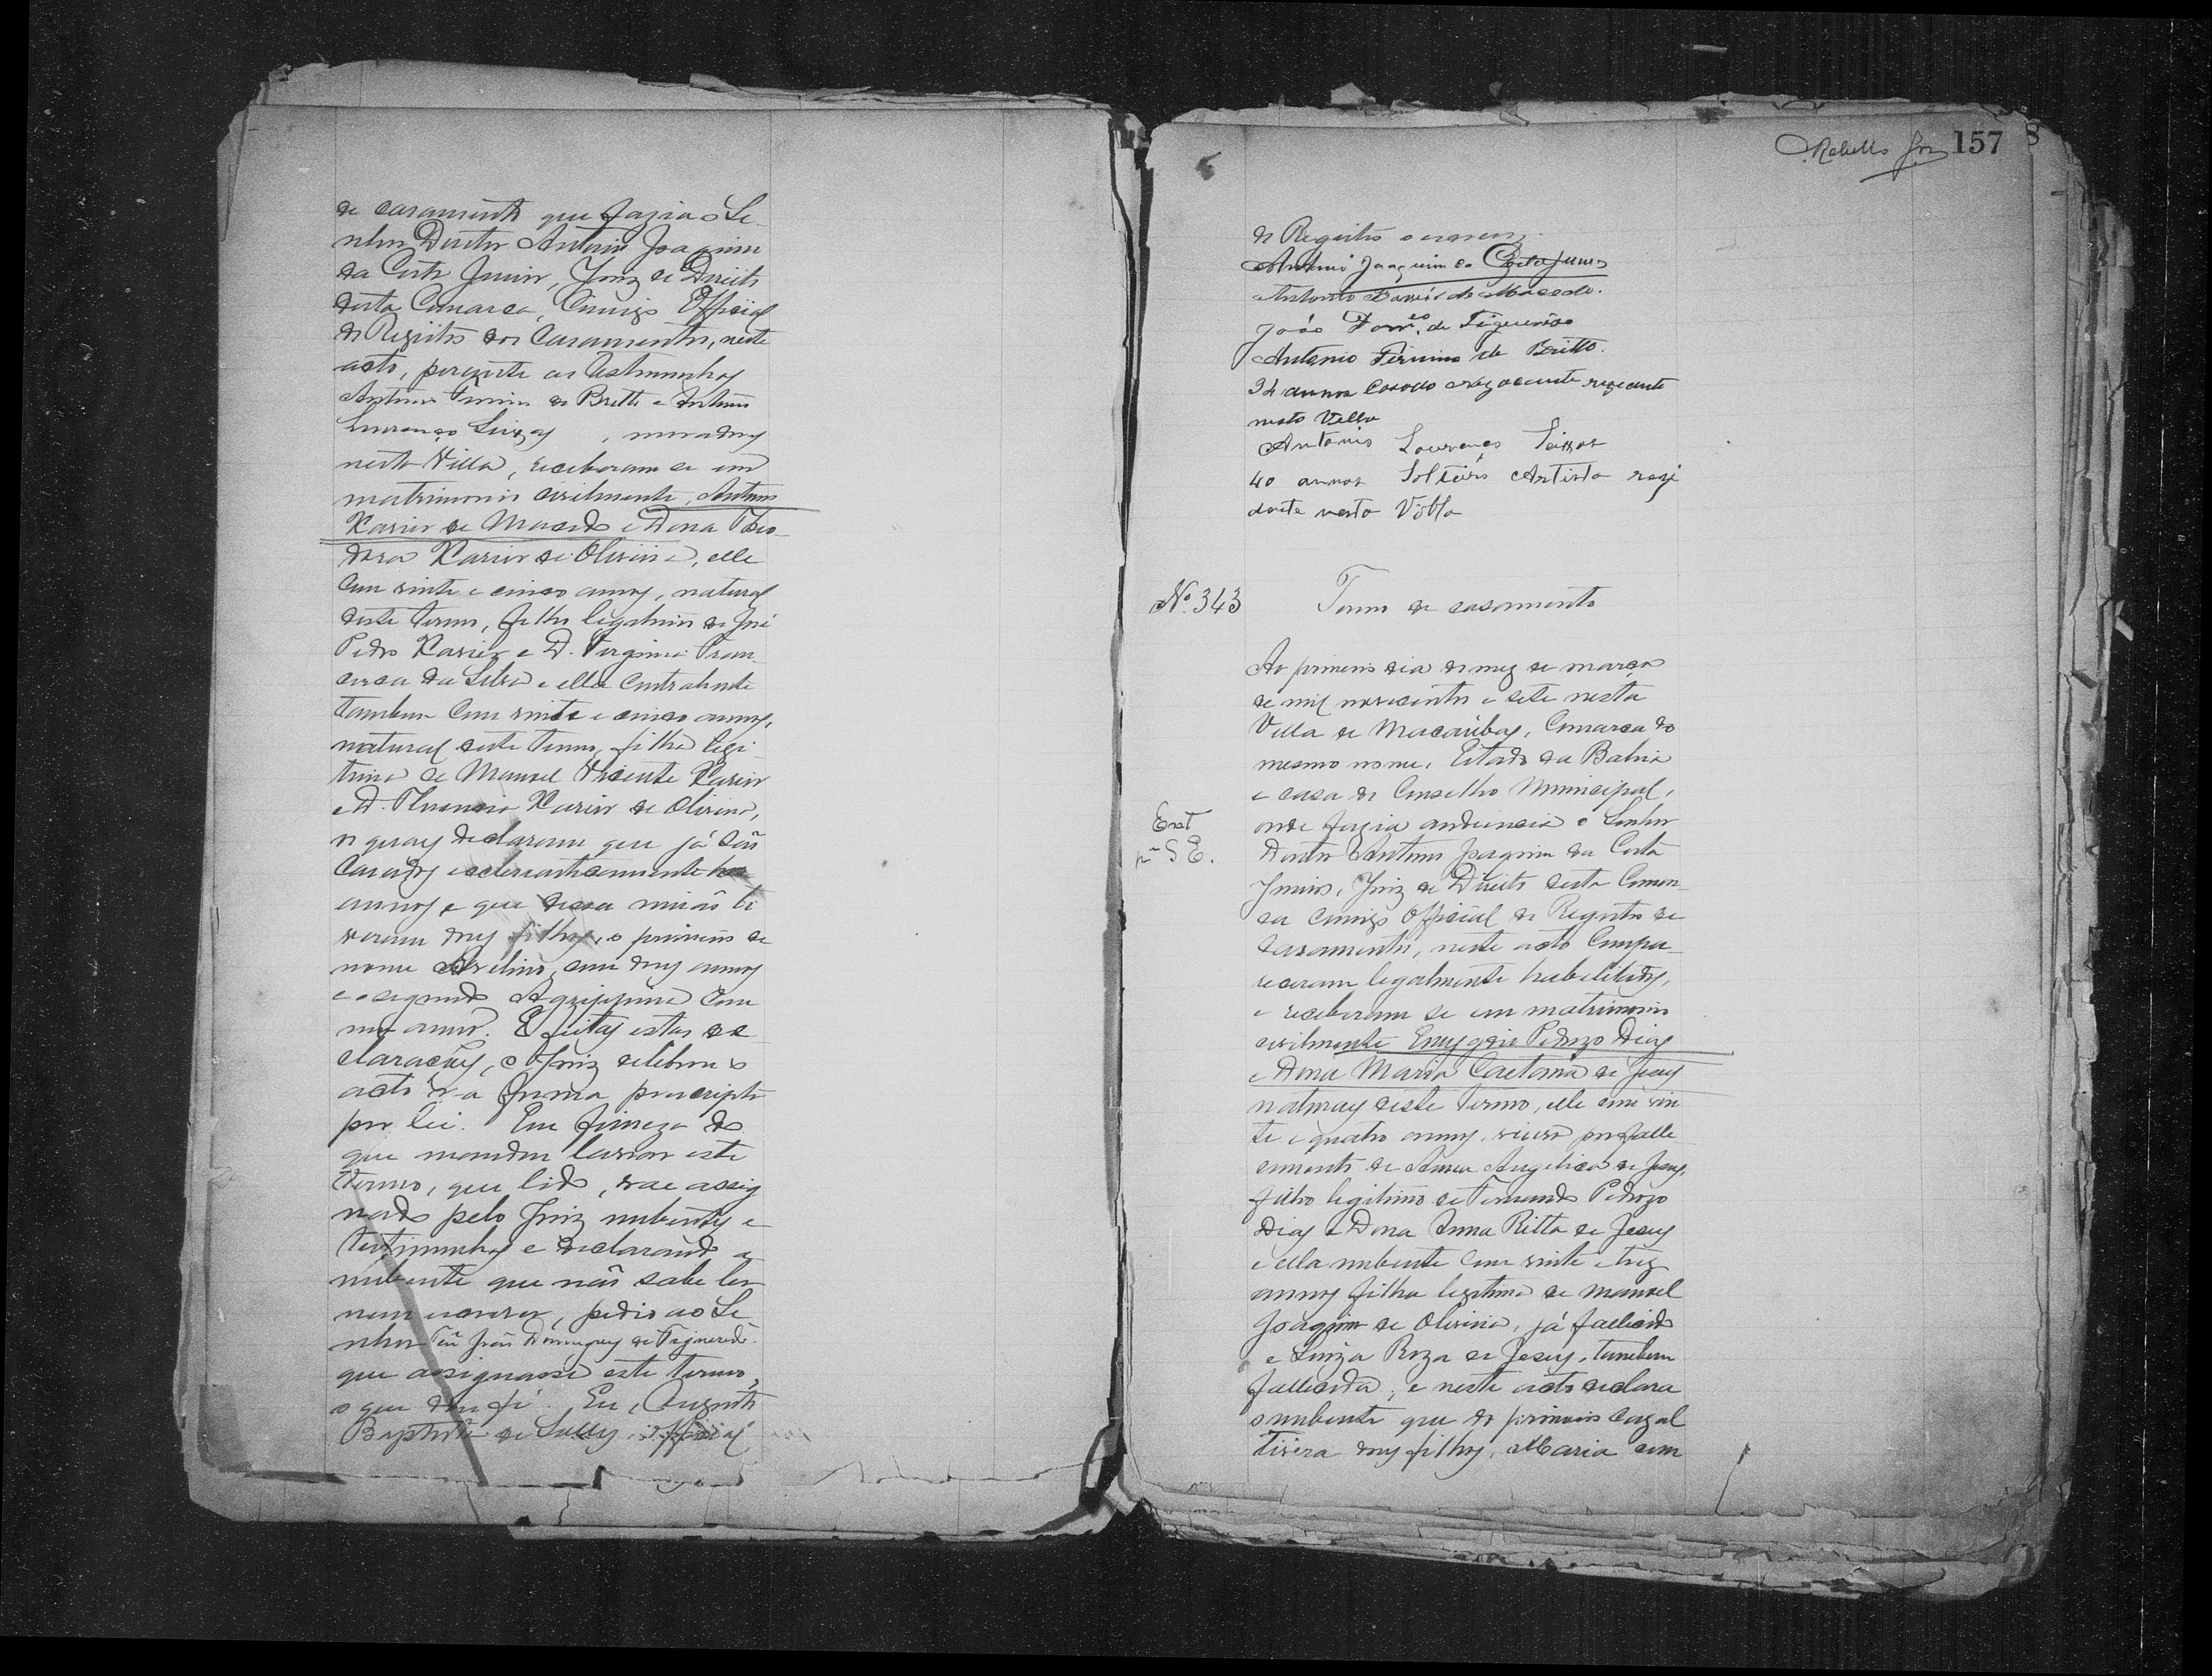 de casamento que fazia o Se-
nhor Doutor Antonio Joaquim
da Costa Junior, Juiz de Direito
desta Comarca, Comigo Official
do Registro dos Casamentos, neste
acto, perante as testemunhas
Antonio Firmino de Britto e Antonio
Lourenço Seixas, moradores
nesta Villa, receberam se em
matrimonio civilmente, Antonio
Xavier de Macedo e Dona Theo-
dora Xavier de Oliveira, elle
com vinte e cinco annos, natural
deste termo, filho legitimo de José
Pedro Xavier e D. Virginia Fran-
cisca da Silva e ella contrahente
tambem com vinte e cinco annos,
natural deste termo, filha legi-
tima de Manoel Vicente Xavier
e D. Xavier de Oliveira,
os quaes declararam que já são
casados ecclesiasticamente ha
annos e que dessa união ti
veram dous filhos, o primeiro de
nome Avelino, com dous annos
e o segundo Agrippina com
um anno. E feitas estas de
clarações, o Juiz celebrou o
acto na forma prescripta
por lei. Em firmeza do
que mandou lavrar este
termo, que lido, vae assig
nado pelo Juiz nubentes e
testimunhas e declarando a
nubente que não sabe ler
nem escrever, pedio ao Se
nhor Tete João Domingues de Figueredo
que assignasse este termo,
o que dou fé. Eu, Augusto
Baptista de Souza, official
Rebello Jor 157
8
do Registro o escrevy.
Antonio Joaquim da Costa Junior
Antonio Xavier de Macedo.
João Domes de Figueirêdo
Antonio Firmino de Britto.
34 annos Casado negociante rezedente
nesta Villa
Antonio Lourenço Seixas
40 annos Solteiro Artista rezi
dente nesta Villa
No. 343 Termo de casamento
Ao primeiro dia do mez de março
de mil novecentos e sete nesta
Villa de Macaúbas, Comarca do
mesmo nome, Estado da Bahia
e casa do Conselho Municipal,
Ext
pa S E.
onde fazia audiencia o Senhor
Doutor Antonio Joaquim da Costa
Junior, Juiz de Direito desta Comar-
ca comigo Official do Registro de
Casamentos, neste acto Compa-
receram legalmente habilitados,
e receberam se em matrimonio
civilmente Emygdio Pedrozo Dias
e Dona Maria Caetana de Jesus
naturaes deste termo, elle com vin
te e quatro annos, viuvo por falle
cimento de Anna Angelica de Jesus,
filho legitimo de Fernando Pedrozo
Dias e Dona Anna Ritta de Jesus
e ella nubente com vinte e trez
annos filha legitima de Manoel
Joaquim de Oliveira, já fallecido
e Luiza Roza de Jesus, tambem
fallecida, e neste acto declara
o nubente que do primeiro cazal
tivera dous filhos, Maria com